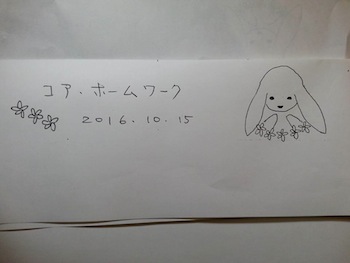 コア・ホームワーク
2016.10.15